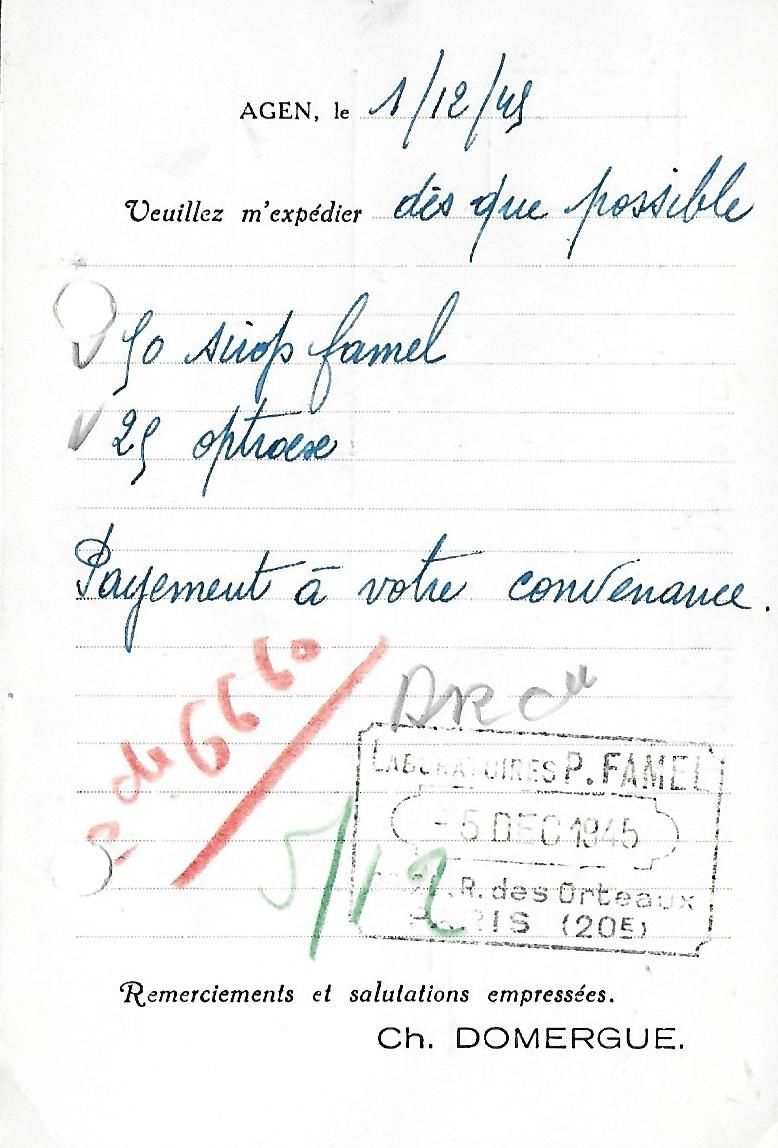 AGEN, le 1/12/45
Veuillez m'expédier dès que possible
50 sirop famel
25 optraex
Payement à votre convenance.
de 6660
LABORATOIRES P. FAMEL
-5 DEC 1945
R. des Orteaux
PARIS (20E)
5/12
Remerciements et salutations empressées.
Ch. DOMERGUE.